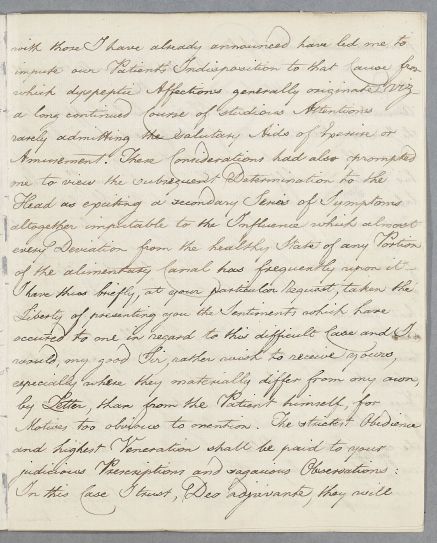 with those I have already announced have led me to
impute our Patient's Indisposition to that Cause from
which dyspeptic Affections generally originate Viz
a long continued Course of studious Attentions
rarely admitting the salutary Aids of Exercise or
Amusement. These Considerations had also prompted
me to view the subsequent Determination to the
Head as exciting a secondary Series of Symptoms
altogether imputable to the Influence which almost
every Deviation from the healthy State of any Portion
of the alimentary Canal has frequently upon it —
I have thus briefly, at your particular Request, taken the
Liberty of presenting you the Sentiments which have
occured to me in regard to this difficult Case and I
would, my good Sir, rather wish to receive yours,
especially where they materially differ from my own,
by Letter, than from the Patient himself, for
Motives too obvious to mention. The strictest Obedience
and highest Veneration shall be paid to your
judicious Prescriptions and sagacious Observations:
In this Case I trust, Deo adjuvante, they will